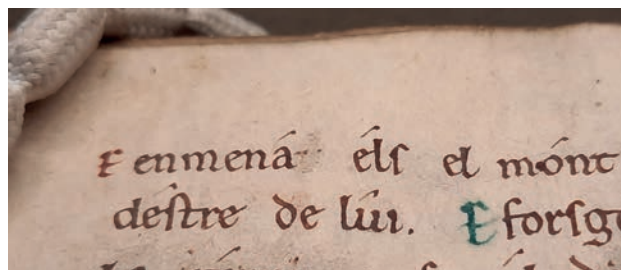 E enmená élſ el mónt
déſtre de lúi. E forſg